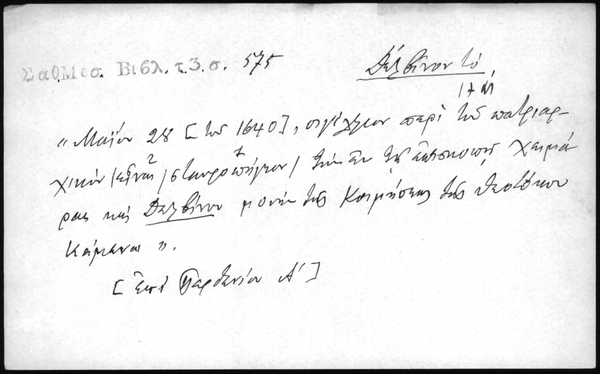 Σαθ. Μεσ. Βιβλ. τ. 3. σ. 575
Δέλβινον τό
" Μαΐου 28 [τοῦ 1640], σιγίλλιον περὶ τοῦ πατριαρ-
χικὴν εἶναι σταυροπήγιον τὴν ἐν τῇ ἐπισκοπῇ Χειμά
ρας καὶ Δελβίνου μονὴν τῆς Κοιμήσεως τῆς Θεοτόκου
Κάμενα ".
[ Ἐπὶ Παρθενίου Α' ]